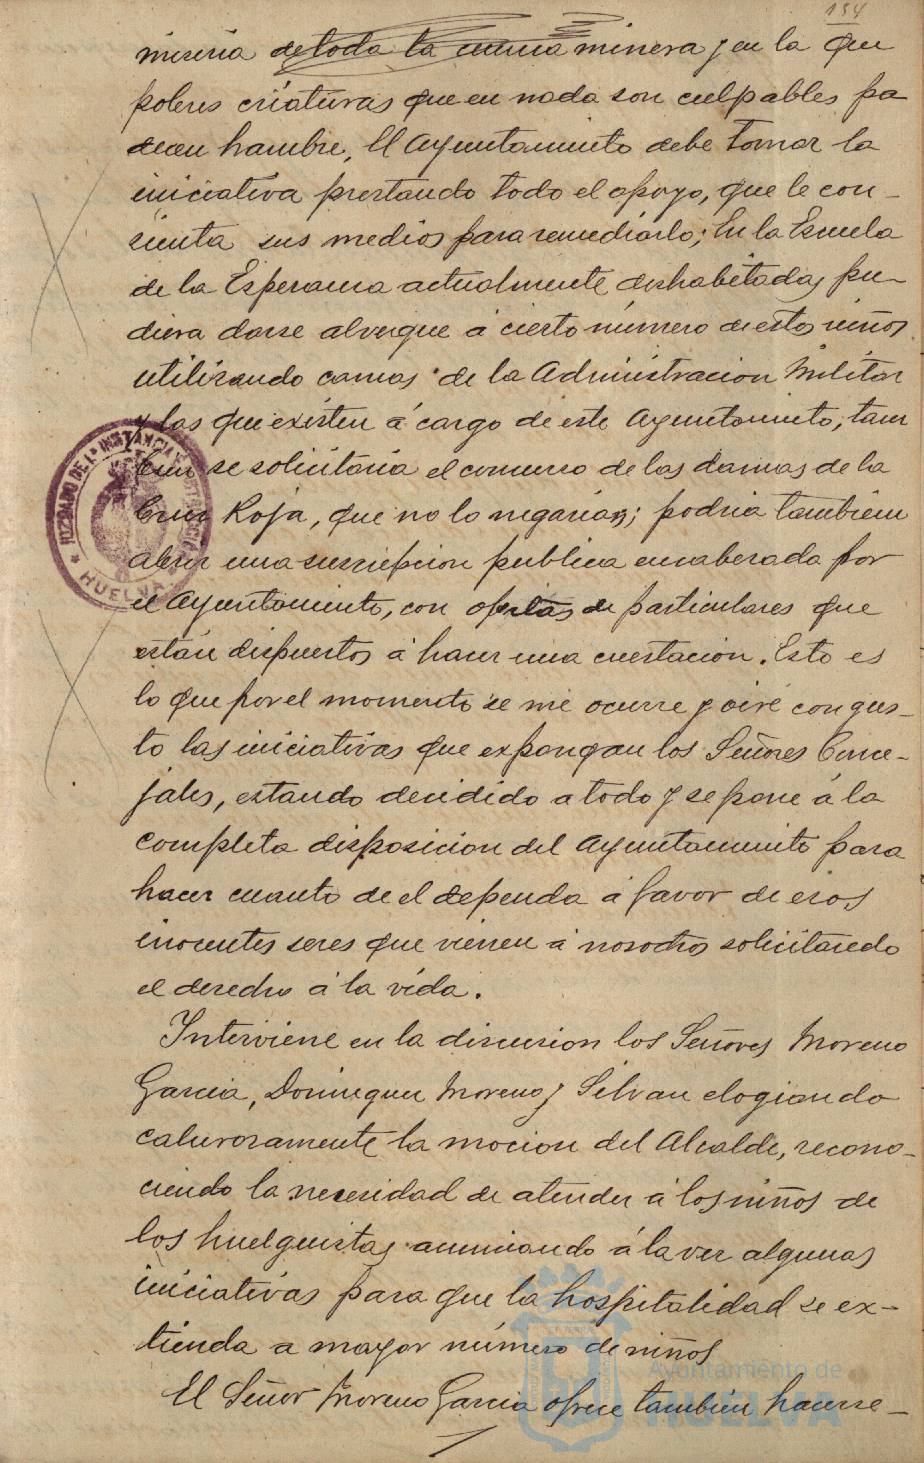 154
miseria de toda la cuenca minera y en la que
pobres criaturas que en nada son culpables pa
decen hambre, El Ayuntamiento debe tomar la
iniciativa prestando todo el apoyo, que le con-
sienta sus medios para remediarlo; En la Escuela
de la Esperanza actualmente deshabitada, pu-
diera darse alvergue á cierto número de estos niños
utilizando camas de la Administracion Militar
y las que existen á cargo de este Ayuntamiento, tam
bien se solicitaria el concurso de las damas de la
Cruz Roja, que no lo negarian; podria tambien
abrir una suscripcion publica encabezada por
el Ayuntamiento, con ofertas de particulares que
están dispuestos á hacer una cuestacion. Esto es
lo que por el momento se me ocurre y oiré con gus-
to las iniciativas que expongan los Señores Conce-
jales, estando decidido a todo y se pone á la
completa disposicion del Ayuntamiento para
hacer cuanto de el dependa á favor de esos
inocentes seres que vienen á nosotros solicitando
el derecho á la vida.
Interviene en la discusion los Señores Moreno
Garcia, Dominguez Moreno y Silvan elogiando
calurosamente la mocion del Alcalde, recono-
ciendo la necesidad de atender á los niños de
los huelguistas anunciando á la vez algunas
iniciativas para que la hospitalidad se ex-
tienda a mayor número de niños
El Señor Moreno Garcia ofrece tambien hacerse-
JUZGADO DE 1ª INSTANCIA E INSTRUCCION
* HUELVA *
Ayuntamiento de
HUELVA